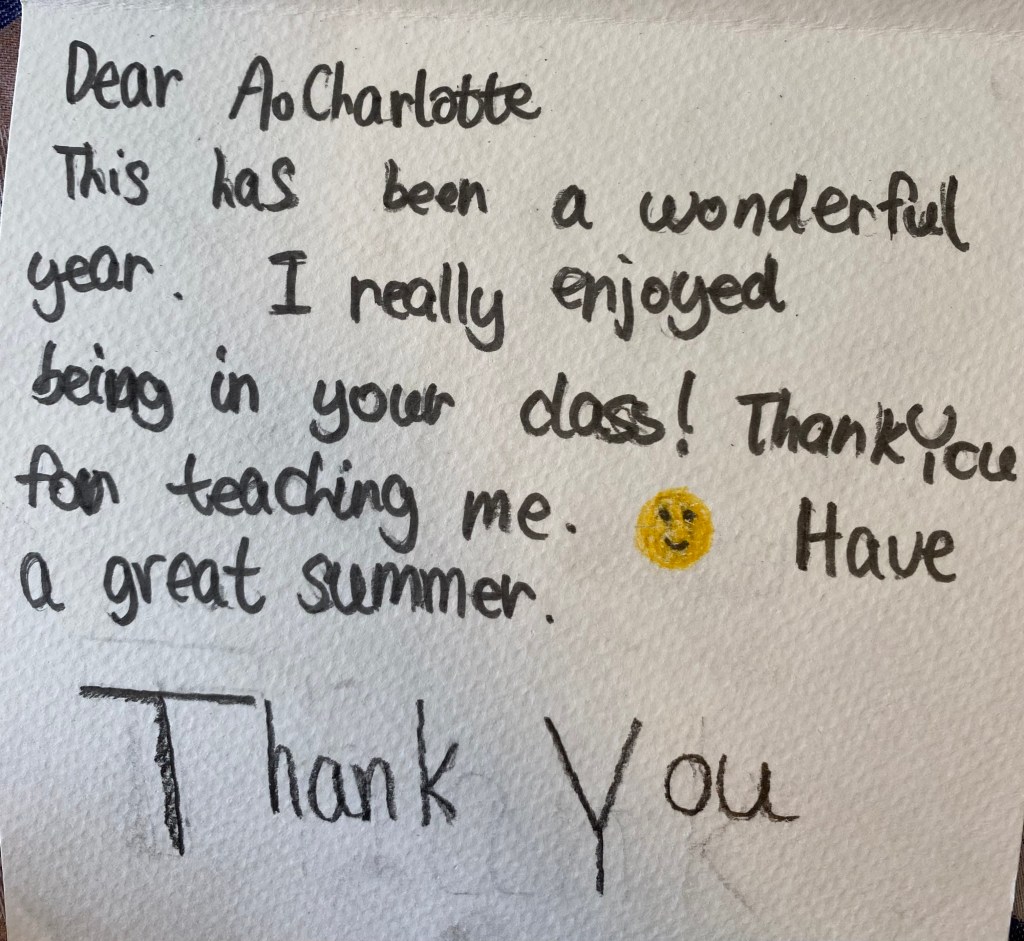 Dear Ao Charlotte
This has been a wonderful
year. I really enjoyed
being in your class! Thank you
for teaching me. Have
a great summer.
Thank You